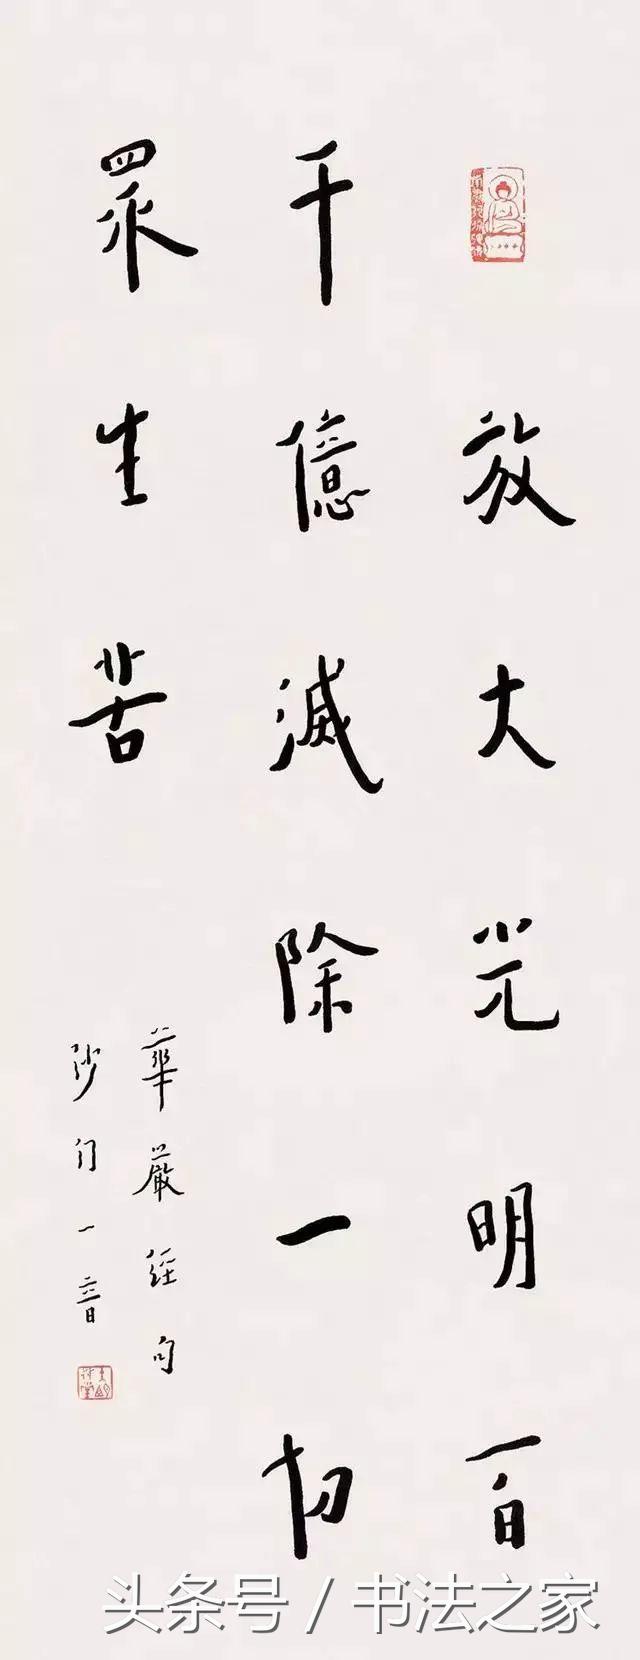 放大光明百
千億滅除一切
眾生苦
華嚴經句
沙门一音
头条号 / 书法之家